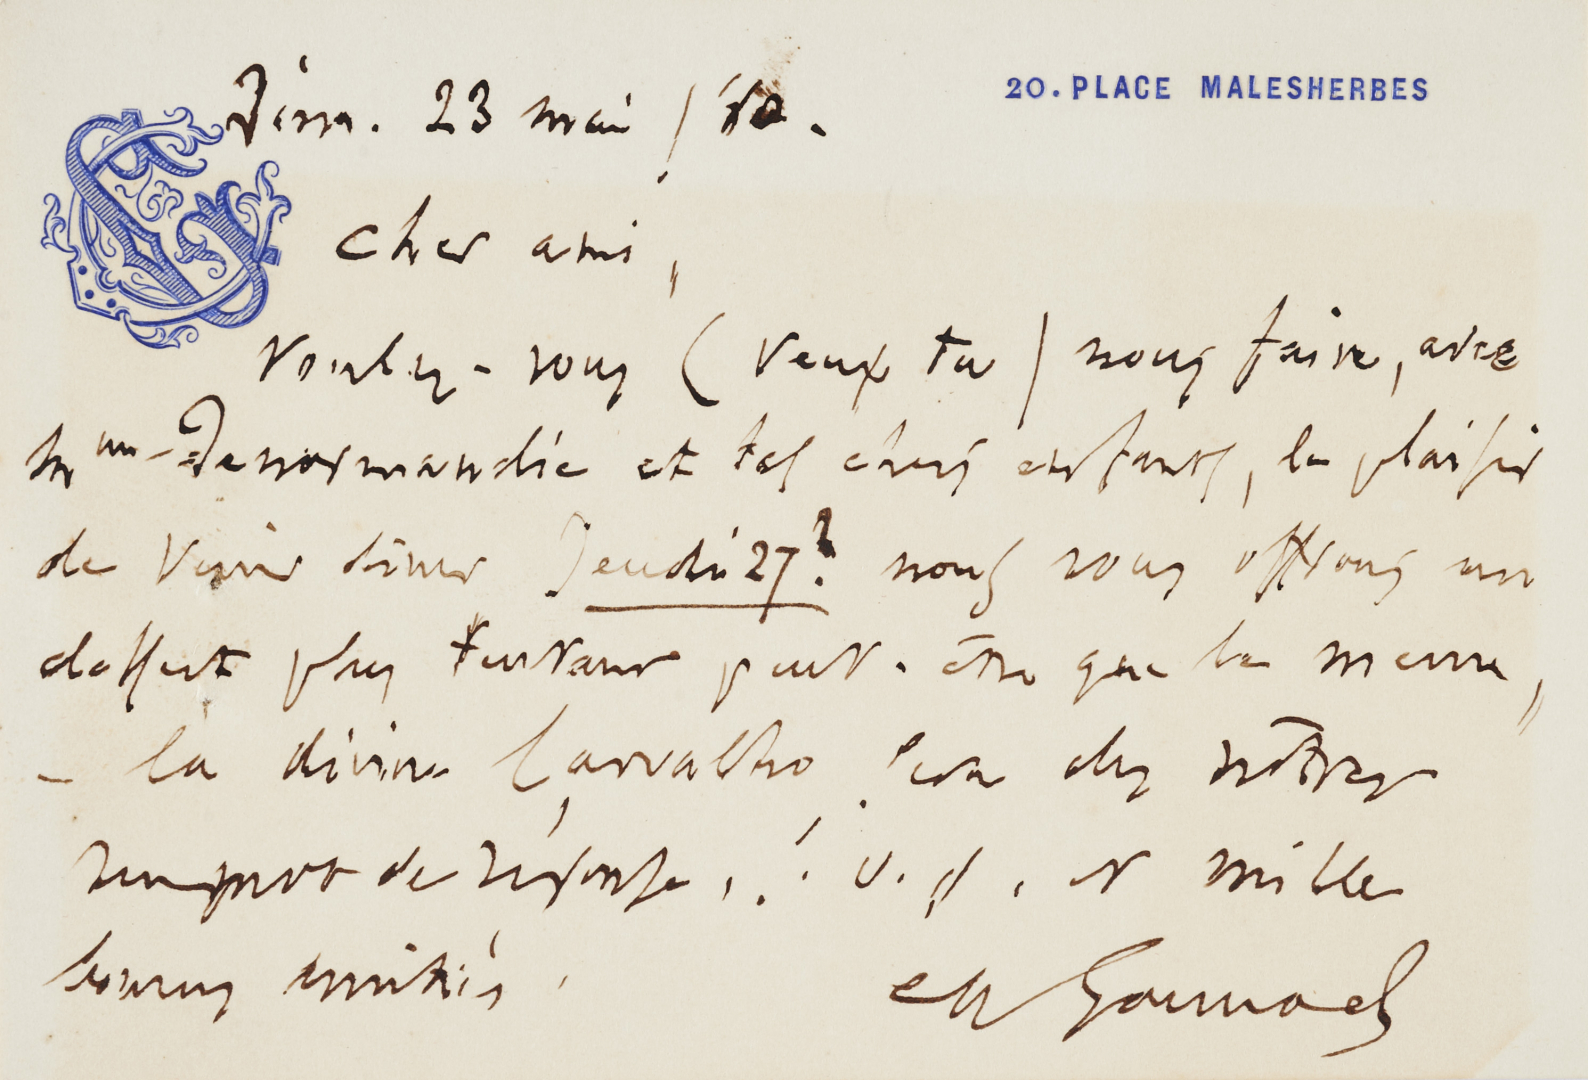 20. PLACE MALESHERBES
Dim. 23 mai / 80.
Cher ami,
Voulez-vous (veux tu) nous faire, avec
Mme Denormandie et tes chers enfants, le plaisir
de venir diner Jeudi 27? nous vous offrons un
dessert plus tentant peut-être que le menu,
- la divine Carvalho sera des nôtres
un mot de réponse, s. v. p. et mille
bonnes amitiés.
Ch Gounod